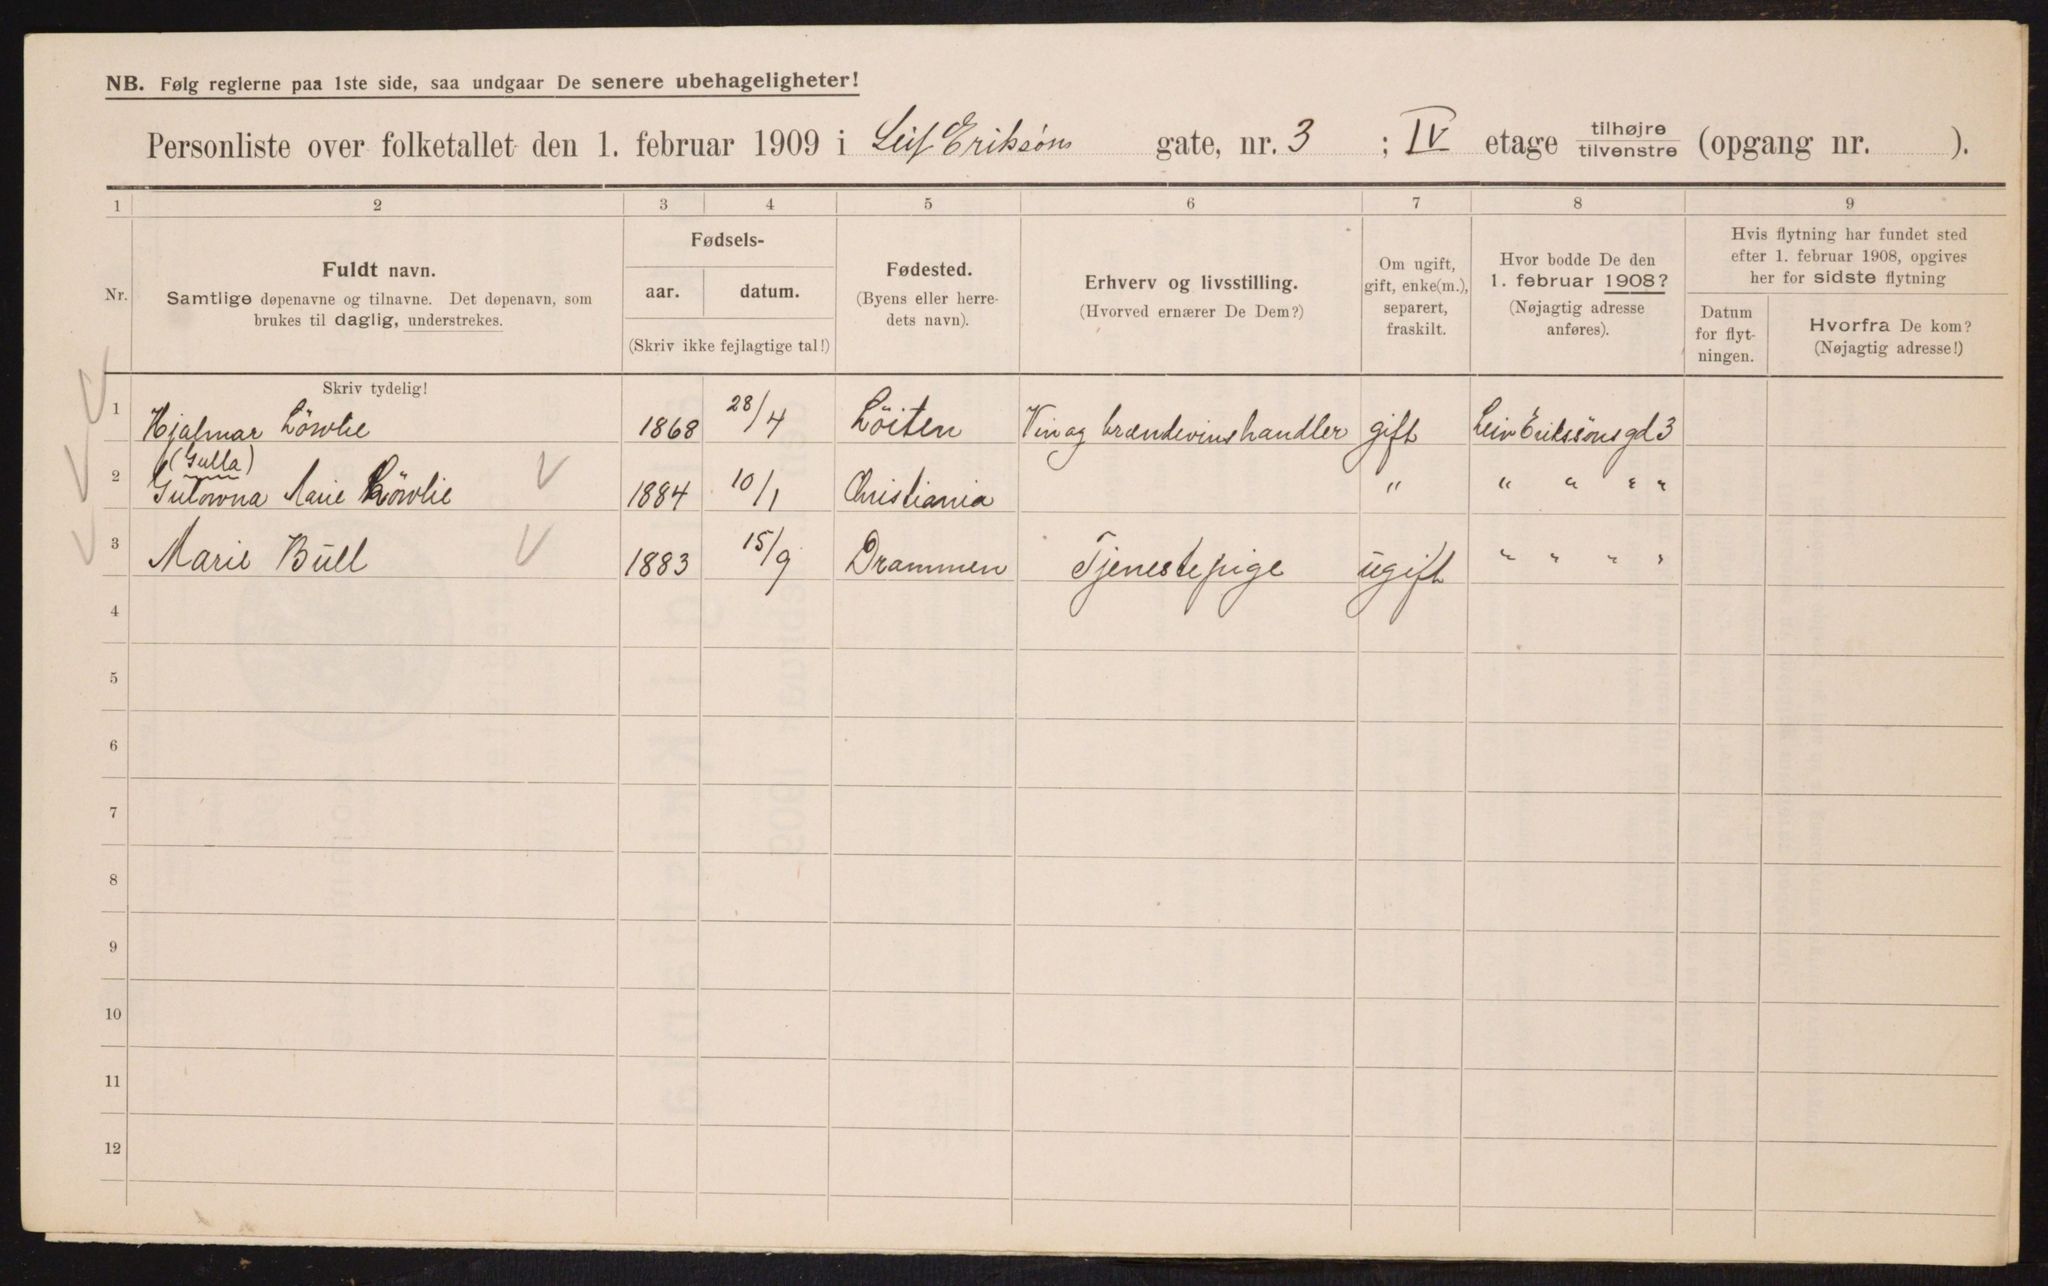 NB. Følg reglerne paa 1ste side, saa undgaar De senere ubehageligheter!
Personliste over folketallet den 1. februar 1909 i Leif Eriksöns gate, nr. 3 ; IV etage tilhøjre / tilvenstre (opgang nr. ).
1 2 3 4 5 6 7 8 9
Nr.
Fuldt navn.
Samtlige døpenavne og tilnavne. Det døpenavn, som
brukes til daglig, understrekes.
Fødsels-
aar. datum.
(Skriv ikke fejlagtige tal!)
Fødested.
(Byens eller herre-
dets navn).
Erhverv og livsstilling.
(Hvorved ernærer De Dem?)
Om ugift,
gift, enke(m.),
separert,
fraskilt.
Hvor bodde De den
1. februar 1908?
(Nøjagtig adresse
anføres).
Hvis flytning har fundet sted
efter 1. februar 1908, opgives
her for sidste flytning
Datum
for flyt-
ningen.
Hvorfra De kom?
(Nøjagtig adresse!)
Skriv tydelig!
1 Hjalmar Lövlie 1868 28/4 Löiten Vin og brændevinshandler gift Leiv Erikssöns gd 3
(Gulla)
2 Marie Lövlie 1884 10/1 Christiania " " " " "
3 Marie Bull 1883 15/9 Drammen Tjenestepige ugift " " " "
4
5
6
7
8
9
10
11
12